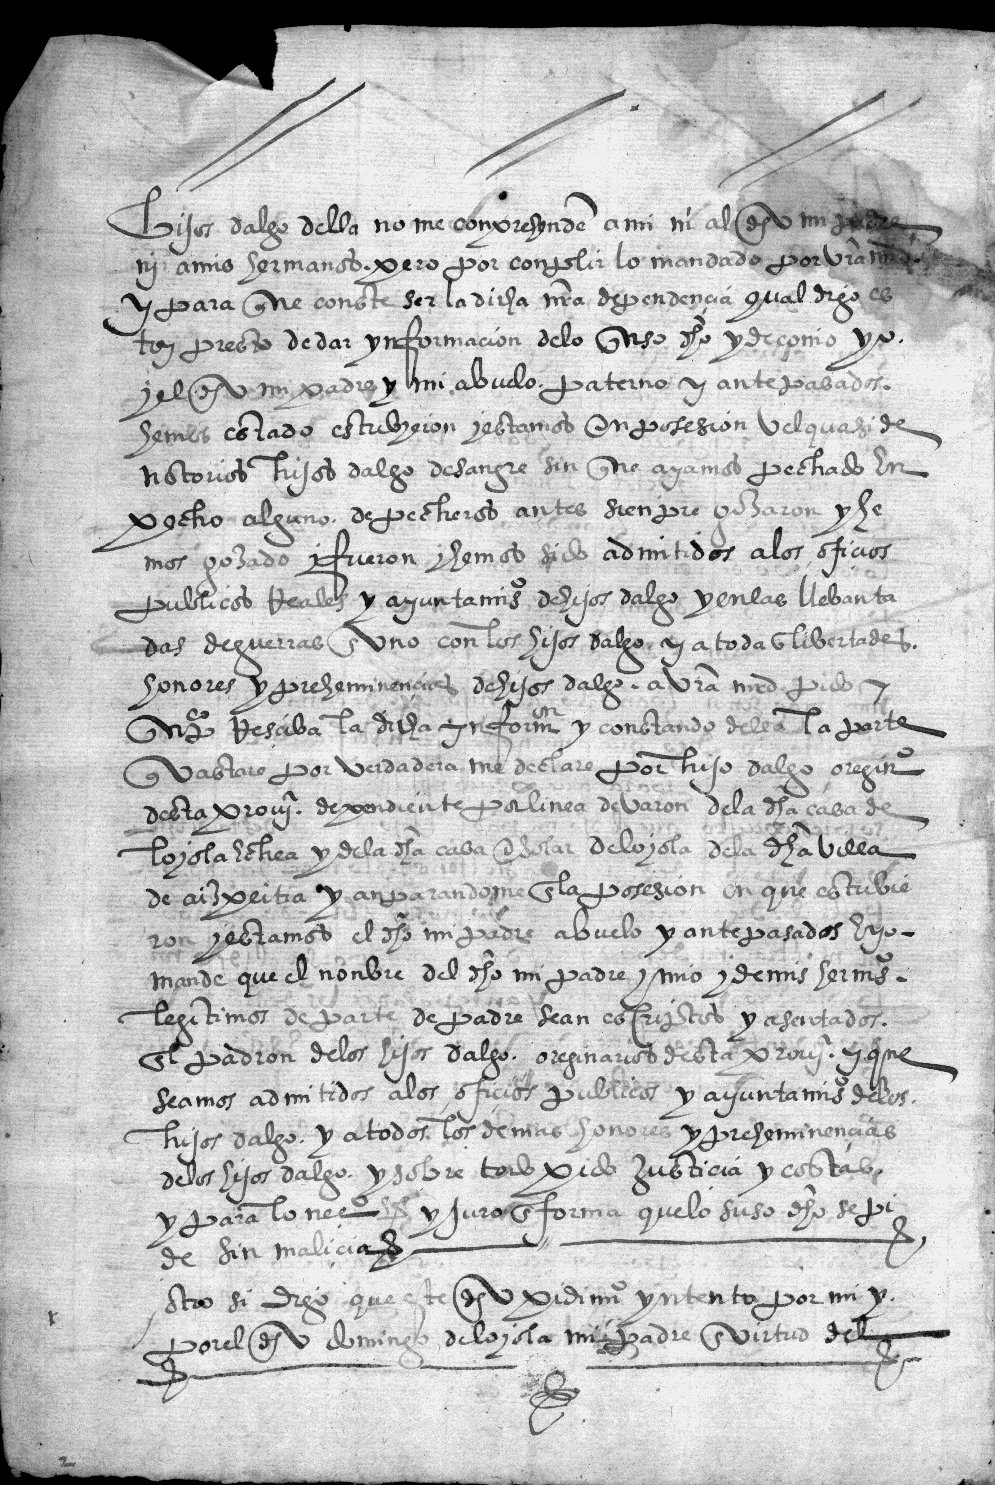 hijos dalgo della no me conprehende a mi ni al dho mi padre
ni a mis hermanos. pero por conplir lo mandado por vra md.
y para que conste ser la dicha nra dependencia qual digo es
toy presto de dar ynformacion de lo suso dho y de como yo.
y el dho mi padre y mi abuelo. paterno y antepasados.
hemos estado estubieron y estamos en posesion vel quasi de
notorios hijos dalgo de sangre sin que ayamos pechado en
pecho alguno. de pecheros antes sienpre gozaron y he
mos gozado y fueron y hemos sido admitidos a los oficios
publicos Reales y ayuntamios de hijos dalgo y en las llebanta
das de guerras uno con los hijos dalgo y a todas libertades.
honores y preheminencias de hijos dalgo. a vra md pido y
supco Resciva la dicha ynformon y constando della la parte
que vastare por verdadera me declare por hijo dalgo oreginro
desta provia. dependiente por linea de varon de la dha casa de
loyola echea y de la dha casa e solar de loyola de la dha villa
de aizpeitia y anparandome en la posesion en que estubie
ron y estamos el dho mi padre abuelo y antepasados e yo.
mande que el nonbre del dho mi padre y mio y de mis hermos.
legitimos de parte de padre sean escriptos y asentados.
en el padron de los hijos dalgo. oreginarios desta provia. y que
seamos admitidos a los oficios publicos y ayuntamios de los.
hijos dalgo. y a todos los demas honores y preheminencias
de los hijos dalgo. y sobre todo pido Justicia y costas.
y para lo neco y Juro en forma que lo suso dho se pi
de sin malicia
otro si digo que este dho pidimio yntento por mi y.
por el dho domingo de loyola mi padre en virtud del